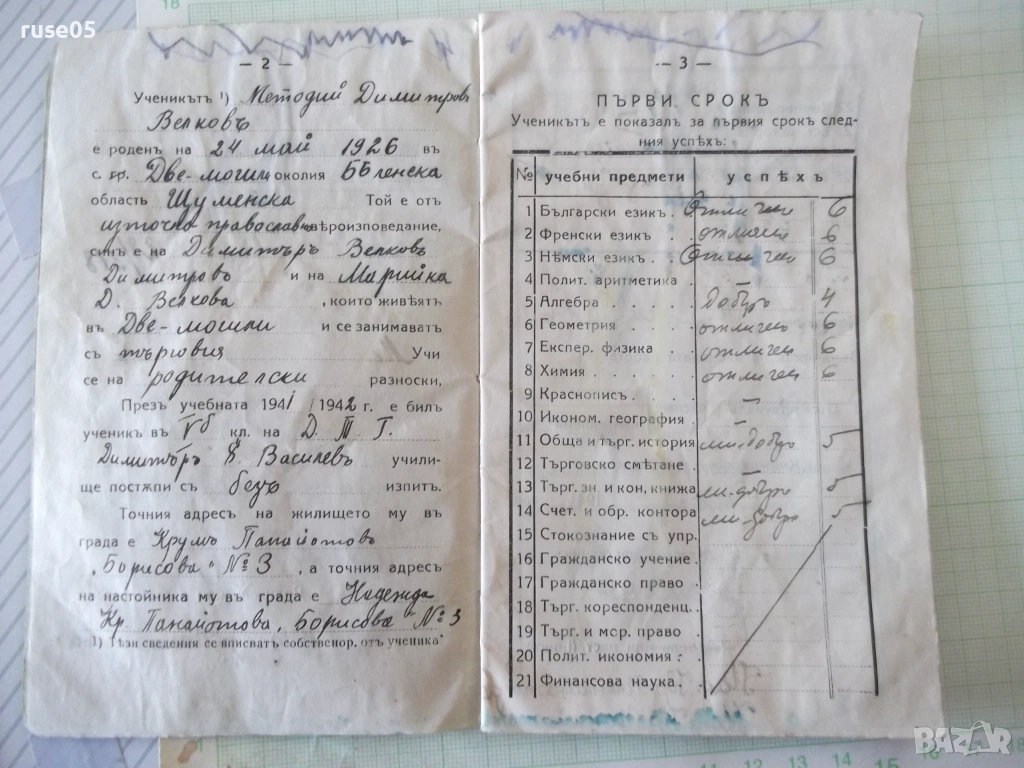 ruse05
— 2 —
Ученикътъ ¹) Методий Димитровъ
Велковъ
е роденъ на 24 май 1926 въ
с. гр. Две-могили околия Бѣленска
область Шуменска Той е отъ
източно православно вѣроизповедание,
синъ е на Димитъръ Велковъ
Димитровъ и на Марийка
Д. Велкова, които живѣятъ
въ Две-могили и се занимаватъ
съ търговия Учи
се на родителски разноски,
Презъ учебната 1941/1942 г. е билъ
ученикъ въ Vб кл. на Д. Т. Г.
Димитъръ В. Василевъ учили-
ще постѫпи съ безъ изпитъ.
Точния адресъ на жилището му въ
града е Крумъ Панайотовъ
„Борисова" № 3, а точния адресъ
на настойника му въ града е Надежда
Кр. Панайотова, Борисова № 3
¹) Тѣзи сведения се вписватъ собственор. отъ ученика
— 3 —
ПЪРВИ СРОКЪ
Ученикътъ е показалъ за първия срокъ след-
ния успѣхъ:
№ учебни предмети успѣхъ
1 Български езикъ. Отличенъ 6
2 Френски езикъ . отличенъ 6
3 Нѣмски езикъ. . Отличенъ 6
4 Полит. аритметика . —
5 Алгебра . . . . . добъръ 4
6 Геометрия . . . . отличенъ 6
7 Експер. физика . . отличенъ 6
8 Химия . . . . . . отличенъ 6
9 Краснописъ . . . —
10 Иконом. география .
11 Обща и търг. история мн. добъръ 5
12 Търговско смѣтане . —
13 Търг. зн. и кон, книжа мн. добъръ 5
14 Счет. и обр. контора мн. добъръ 5
15 Стокознание съ упр.
16 Гражданско учение .
17 Гражданско право .
18 Търг. кореспонденц.
19 Търг. и мор. право
20 Полит. икономия .
21 Финансова наука. .
BAZAR